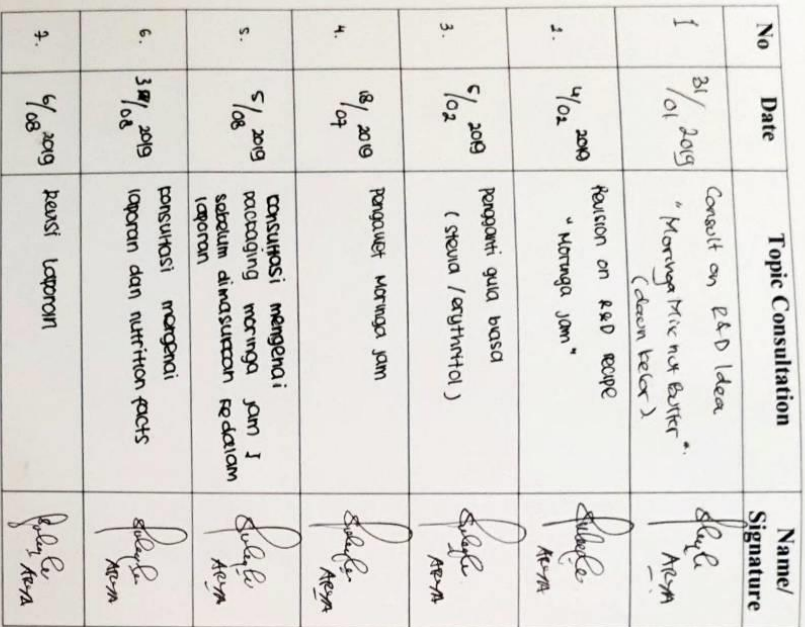 No Date Topic Consultation Name/
Signature
1 31/01 2019 Consult on R&D Idea
"Moringa Mix nut Butter".
(daun kelor)
ARYA
2. 4/02 2019 Revision on R&D recipe
"Moringa jam"
ARYA
3. 5/02 2019 pengganti gula biasa
(stevia / erythritol)
ARYA
4. 18/07 2019 Pengawet Moringa jam
ARYA
5. 5/08 2019 consultasi mengenai
packaging moringa jam
sebelum dimasukkan kedalam
laporan
ARYA
6. /08 2019 consultasi mengenai
laporan dan nutrition facts
ARYA
7. 6/08 2019 Revisi laporan
ARYA